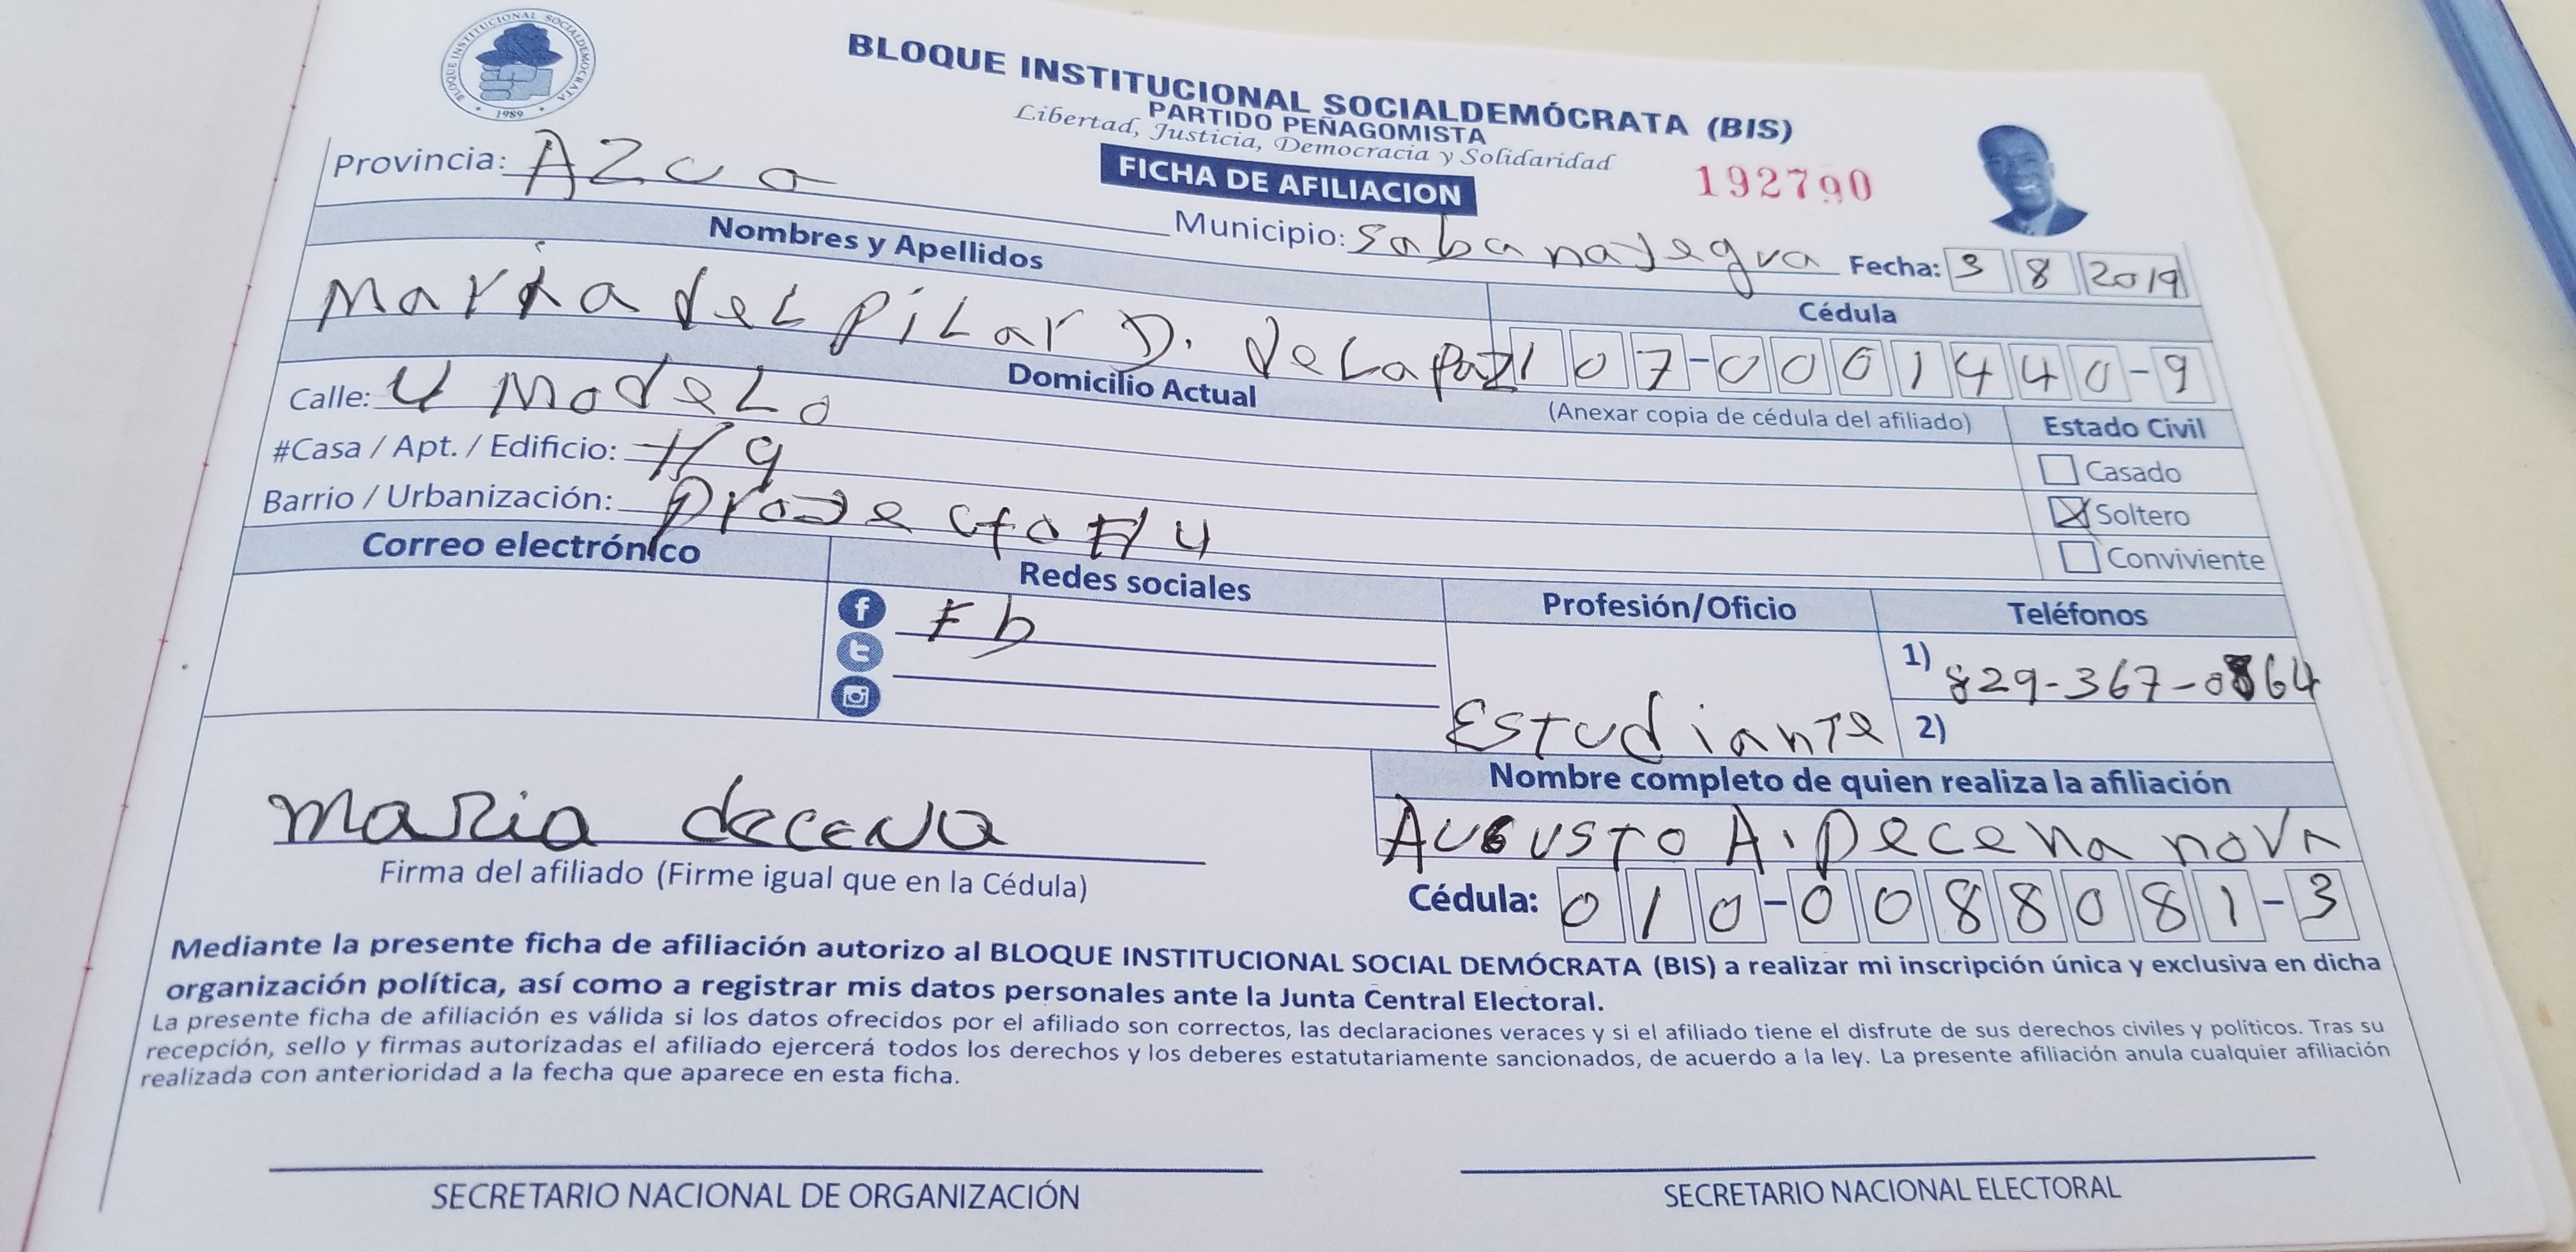 BLOQUE INSTITUCIONAL SOCIALDEMÓCRATA
1989
BLOQUE INSTITUCIONAL SOCIALDEMÓCRATA (BIS)
PARTIDO PEÑAGOMISTA
Libertad, Justicia, Democracia y Solidaridad
FICHA DE AFILIACION
192790
Provincia: AZua
Municipio: Sabana Yegua Fecha: 3 8 2019
Nombres y Apellidos
Cédula
Maria deL piLar D. deLapaz 1 0 7 - 0 0 0 1 4 4 0 - 9
(Anexar copia de cédula del afiliado)
Domicilio Actual
Estado Civil
Calle: 4 ModeLo
Casado
#Casa / Apt. / Edificio: # 9
Soltero
Barrio / Urbanización: Proyecto #4
Conviviente
Correo electrónico
Redes sociales
Fb
Profesión/Oficio
Estudiante
Teléfonos
1) 829-367-0864
2)
Nombre completo de quien realiza la afiliación
Augusto A. Decena nova
Cédula: 0 1 0 - 0 0 8 8 0 8 1 - 3
maria decena
Firma del afiliado (Firme igual que en la Cédula)
Mediante la presente ficha de afiliación autorizo al BLOQUE INSTITUCIONAL SOCIAL DEMÓCRATA (BIS) a realizar mi inscripción única y exclusiva en dicha
organización política, así como a registrar mis datos personales ante la Junta Central Electoral.
La presente ficha de afiliación es válida si los datos ofrecidos por el afiliado son correctos, las declaraciones veraces y si el afiliado tiene el disfrute de sus derechos civiles y políticos. Tras su
recepción, sello y firmas autorizadas el afiliado ejercerá todos los derechos y los deberes estatutariamente sancionados, de acuerdo a la ley. La presente afiliación anula cualquier afiliación
realizada con anterioridad a la fecha que aparece en esta ficha.
SECRETARIO NACIONAL DE ORGANIZACIÓN
SECRETARIO NACIONAL ELECTORAL